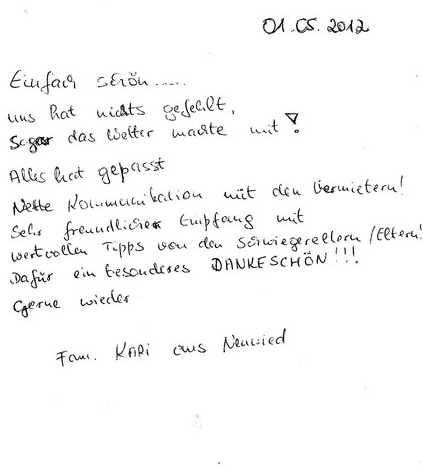 01.05.2012
Einfach schön.....
uns hat nichts gefehlt,
Sogar das Wetter machte mit!
Alles hat gepasst
Nette Kommunikation mit den Vermietern!
Sehr freundlicher Empfang mit
wertvollen Tipps von den Schwiegereltern/Eltern!
Dafür ein besonderes DANKESCHÖN!!!
Gerne wieder
Fam. KAPi aus Neuwied